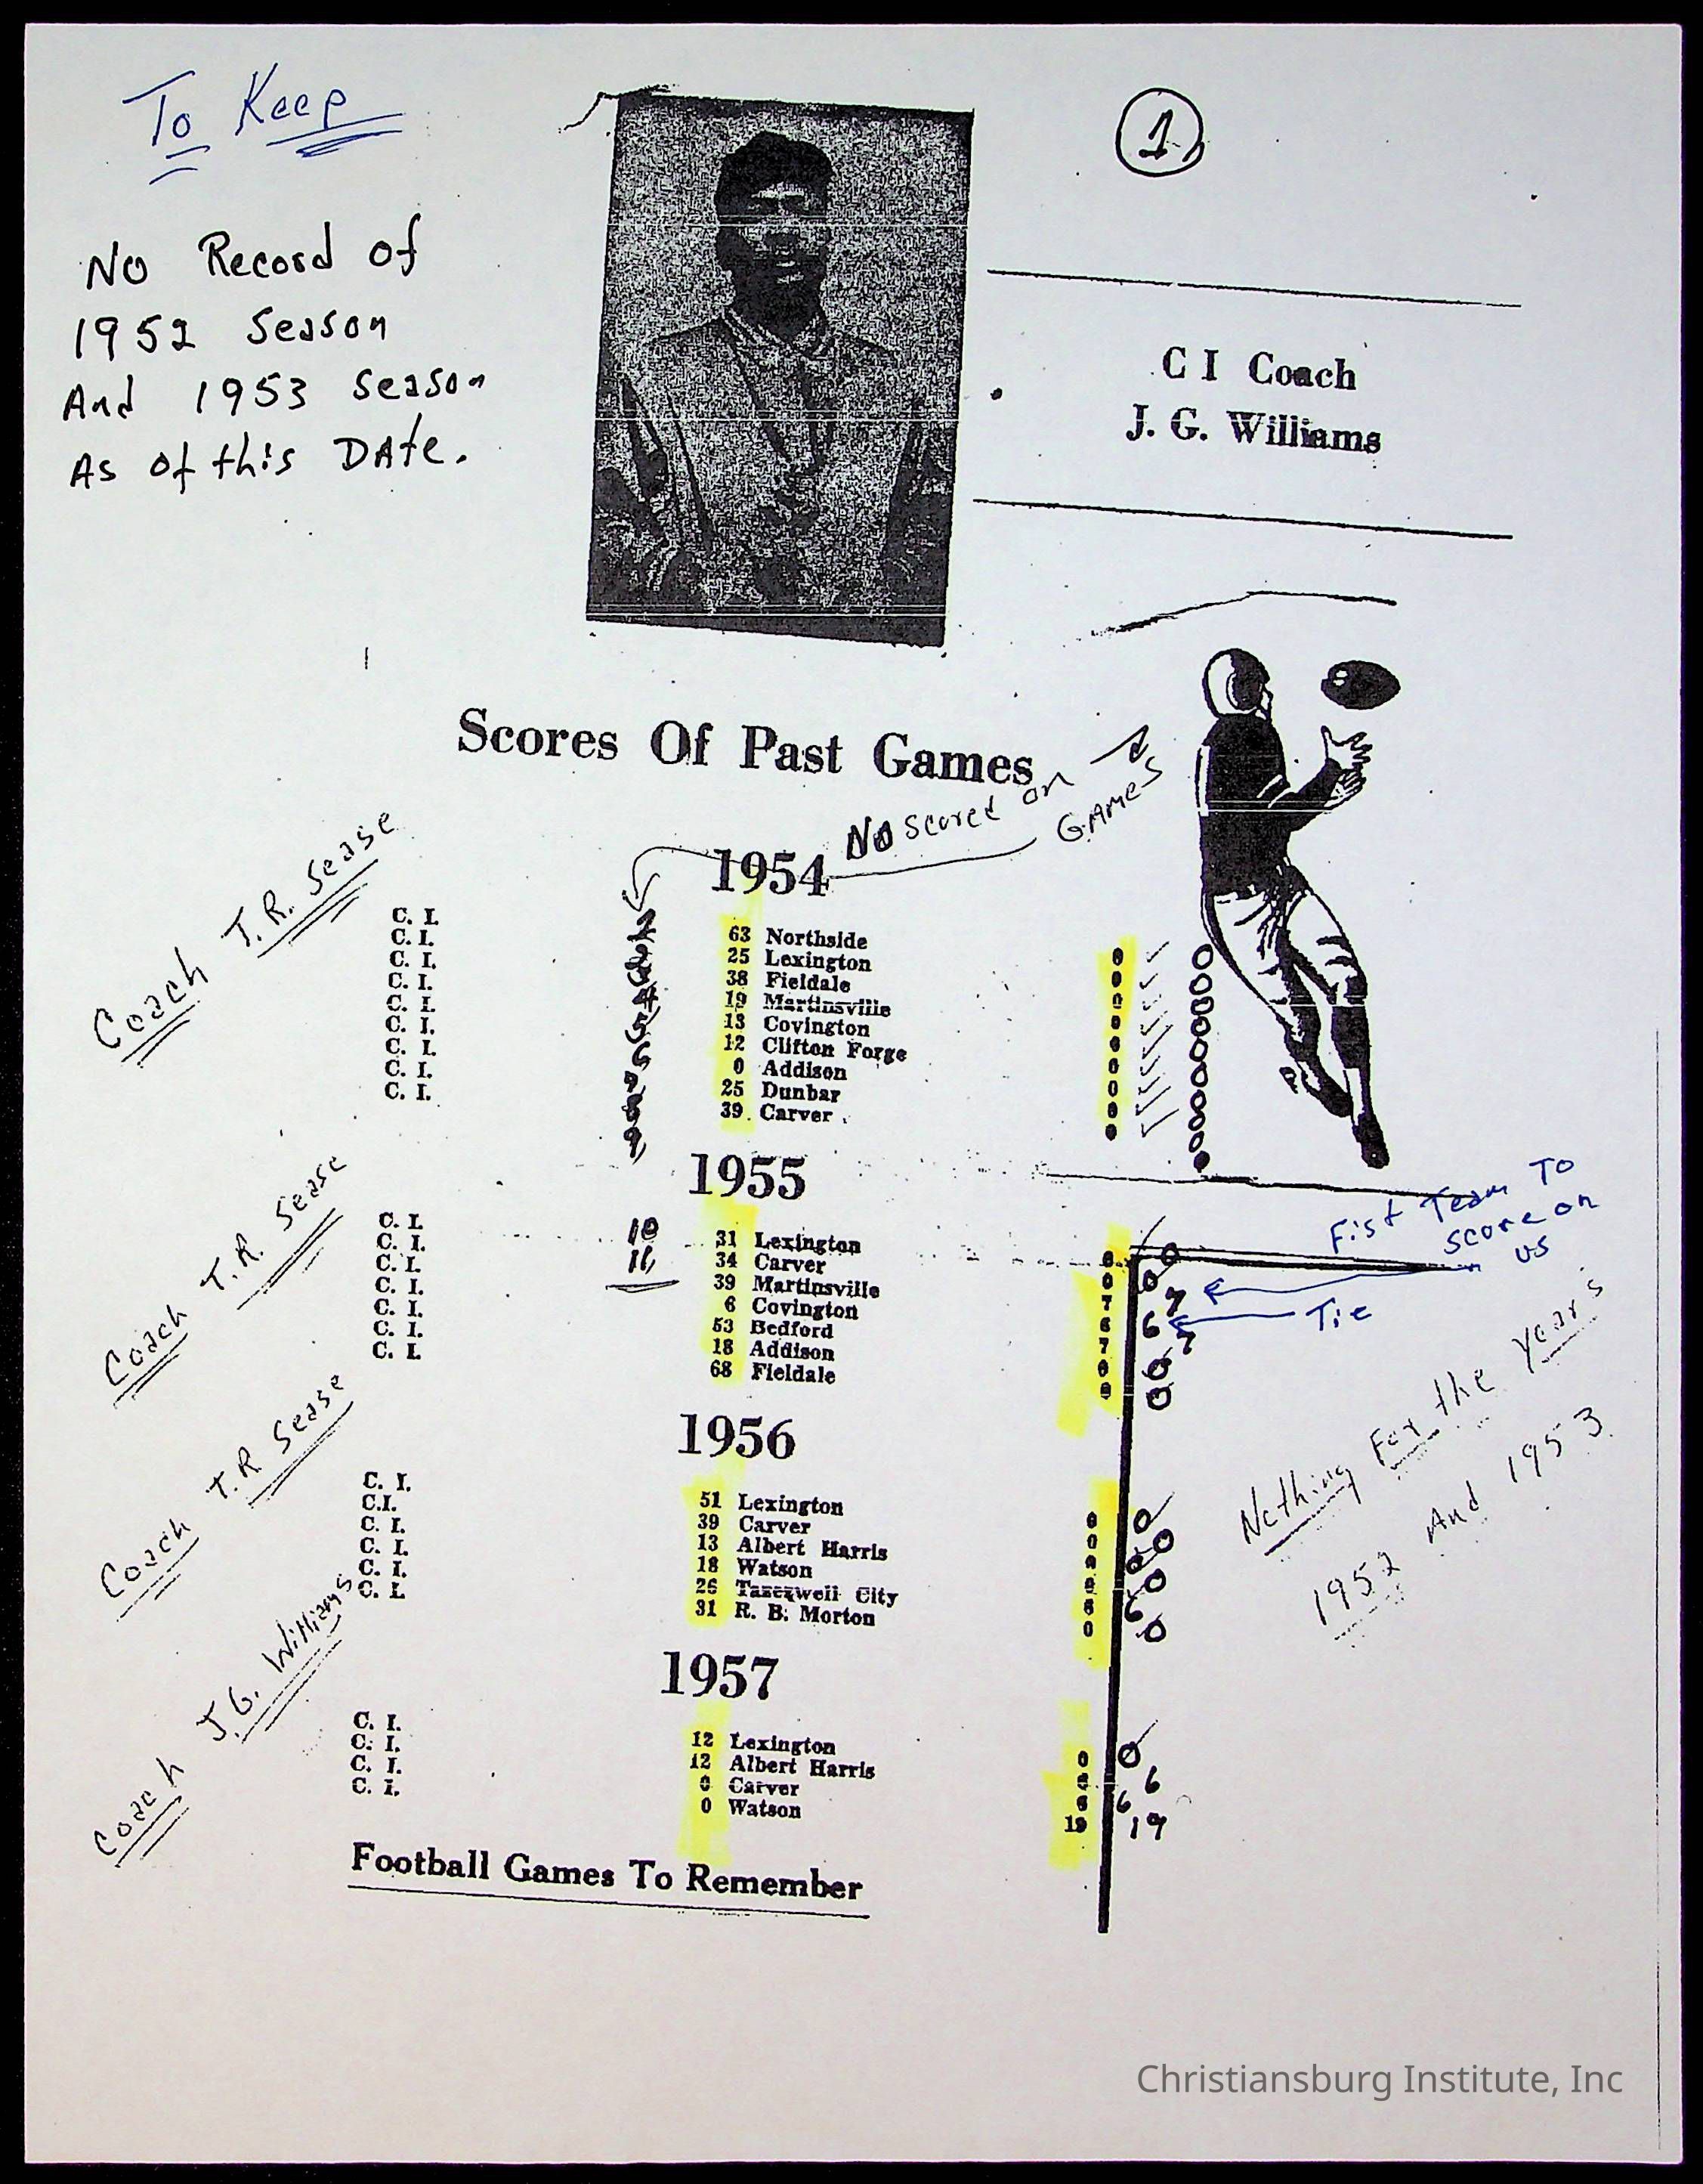 To Keep
1
No Record of
1952 Season
And 1953 Season
As of this DAte.
C I Coach
J. G. Williams
Scores Of Past Games
No Scored on
GAMES
Coach T.R. Sease
1954
C. I. 63 Northside 0 0
C. I. 25 Lexington 0 0
C. I. 38 Fieldale 0 0
C. I. 19 Martinsville 0 0
C. I. 13 Covington 0 0
C. I. 12 Clifton Forge 0 0
C. I. 0 Addison 0 0
C. I. 25 Dunbar 0 0
C. I. 39 Carver 0 0
Coach T.R. Sease
1955
C. I. 10 31 Lexington 0 0
C. I. 11 34 Carver 0 0
C. I. 39 Martinsville 7 7
C. I. 6 Covington 6 6
C. I. 53 Bedford 7 7
C. I. 18 Addison 0 0
C. I. 68 Fieldale 0 0
Fist Team To
score on
us
Tie
Coach T.R Sease
1956
C. I. 51 Lexington 0 0
C.I. 39 Carver 0 0
C. I. 13 Albert Harris 0 0
C. I. 18 Watson 0 0
C. I. 26 Tazezwell City 6 6
C. I. 31 R. B. Morton 0 0
Nothing For the years
1952 And 1953
Coach J.G. Williams
1957
C. I. 12 Lexington 0 0
C. I. 12 Albert Harris 6 6
C. I. 0 Carver 6 6
C. I. 0 Watson 19 19
Football Games To Remember
Christiansburg Institute, Inc